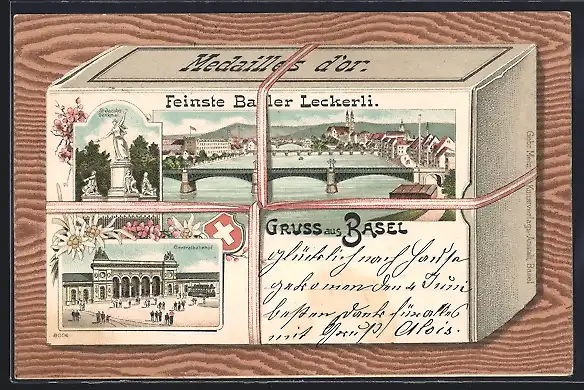 Medailles d'or.
Feinste Basler Leckerli.
St. Jacobs
Denkmal
GRUSS aus BASEL
Centralbahnhof
glücklich nach Hause
gekommen den 4 Juni
besten Dank für alles
mit Gruß Alois.
8006
Gebr. Metz, Kunstverlags-Anstalt, Basel